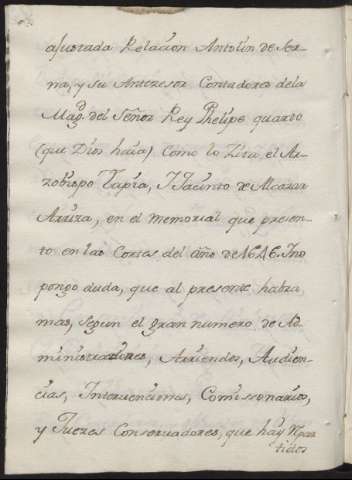 ajustada Relacion Antolin de Ser-
na, y su Antecesor Contadores dela
Magd. del Señor Rey Phelipe quarto
(que Dios haia) Como lo Zita el Ar-
zobispo Tapia, I Jacinto de Alcazar
Arriza, en el Memorial que presen-
to en las Cortes del año de 1646. Ino
pongo duda, que al presente habra
mas, segun el gran numero de Ad
ministradores, Arriendos, Audien-
cias, Intervenciones, Comissionarios,
y Jueces Conservadores, que hay
tidos